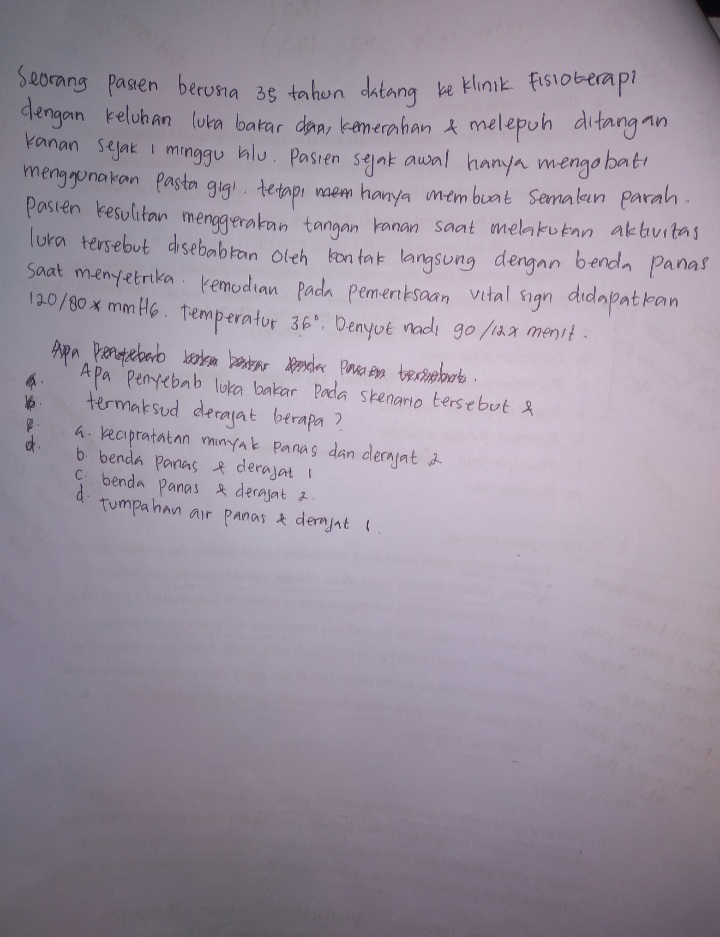 Seorang pasien berusia 35 tahun datang ke klinik Fisioterapi
dengan keluhan luka bakar dan, kemerahan & melepuh ditangan
kanan sejak 1 minggu lalu. Pasien sejak awal hanya mengobati
menggunakan pasta gigi. tetapi mem hanya membuat semakin parah.
Pasien kesulitan menggerakan tangan kanan saat melakukan aktivitas
luka tersebut disebabkan oleh kontak langsung dengan benda panas
saat menyetrika. kemudian pada pemeriksaan vital sign didapatkan
120/80 x mmHG. temperatur 36°. Denyut nadi 90/12x menit.
Apa Penyebab luka bakar pada Pasien tersebut.
a. Apa penyebab luka bakar pada skenario tersebut &
b. termaksud derajat berapa?
c.
d.
a. kecipratatan minyak panas dan derajat 2
b. benda panas & derajat 1
c. benda panas & derajat 2.
d. tumpahan air panas & derajat 1.